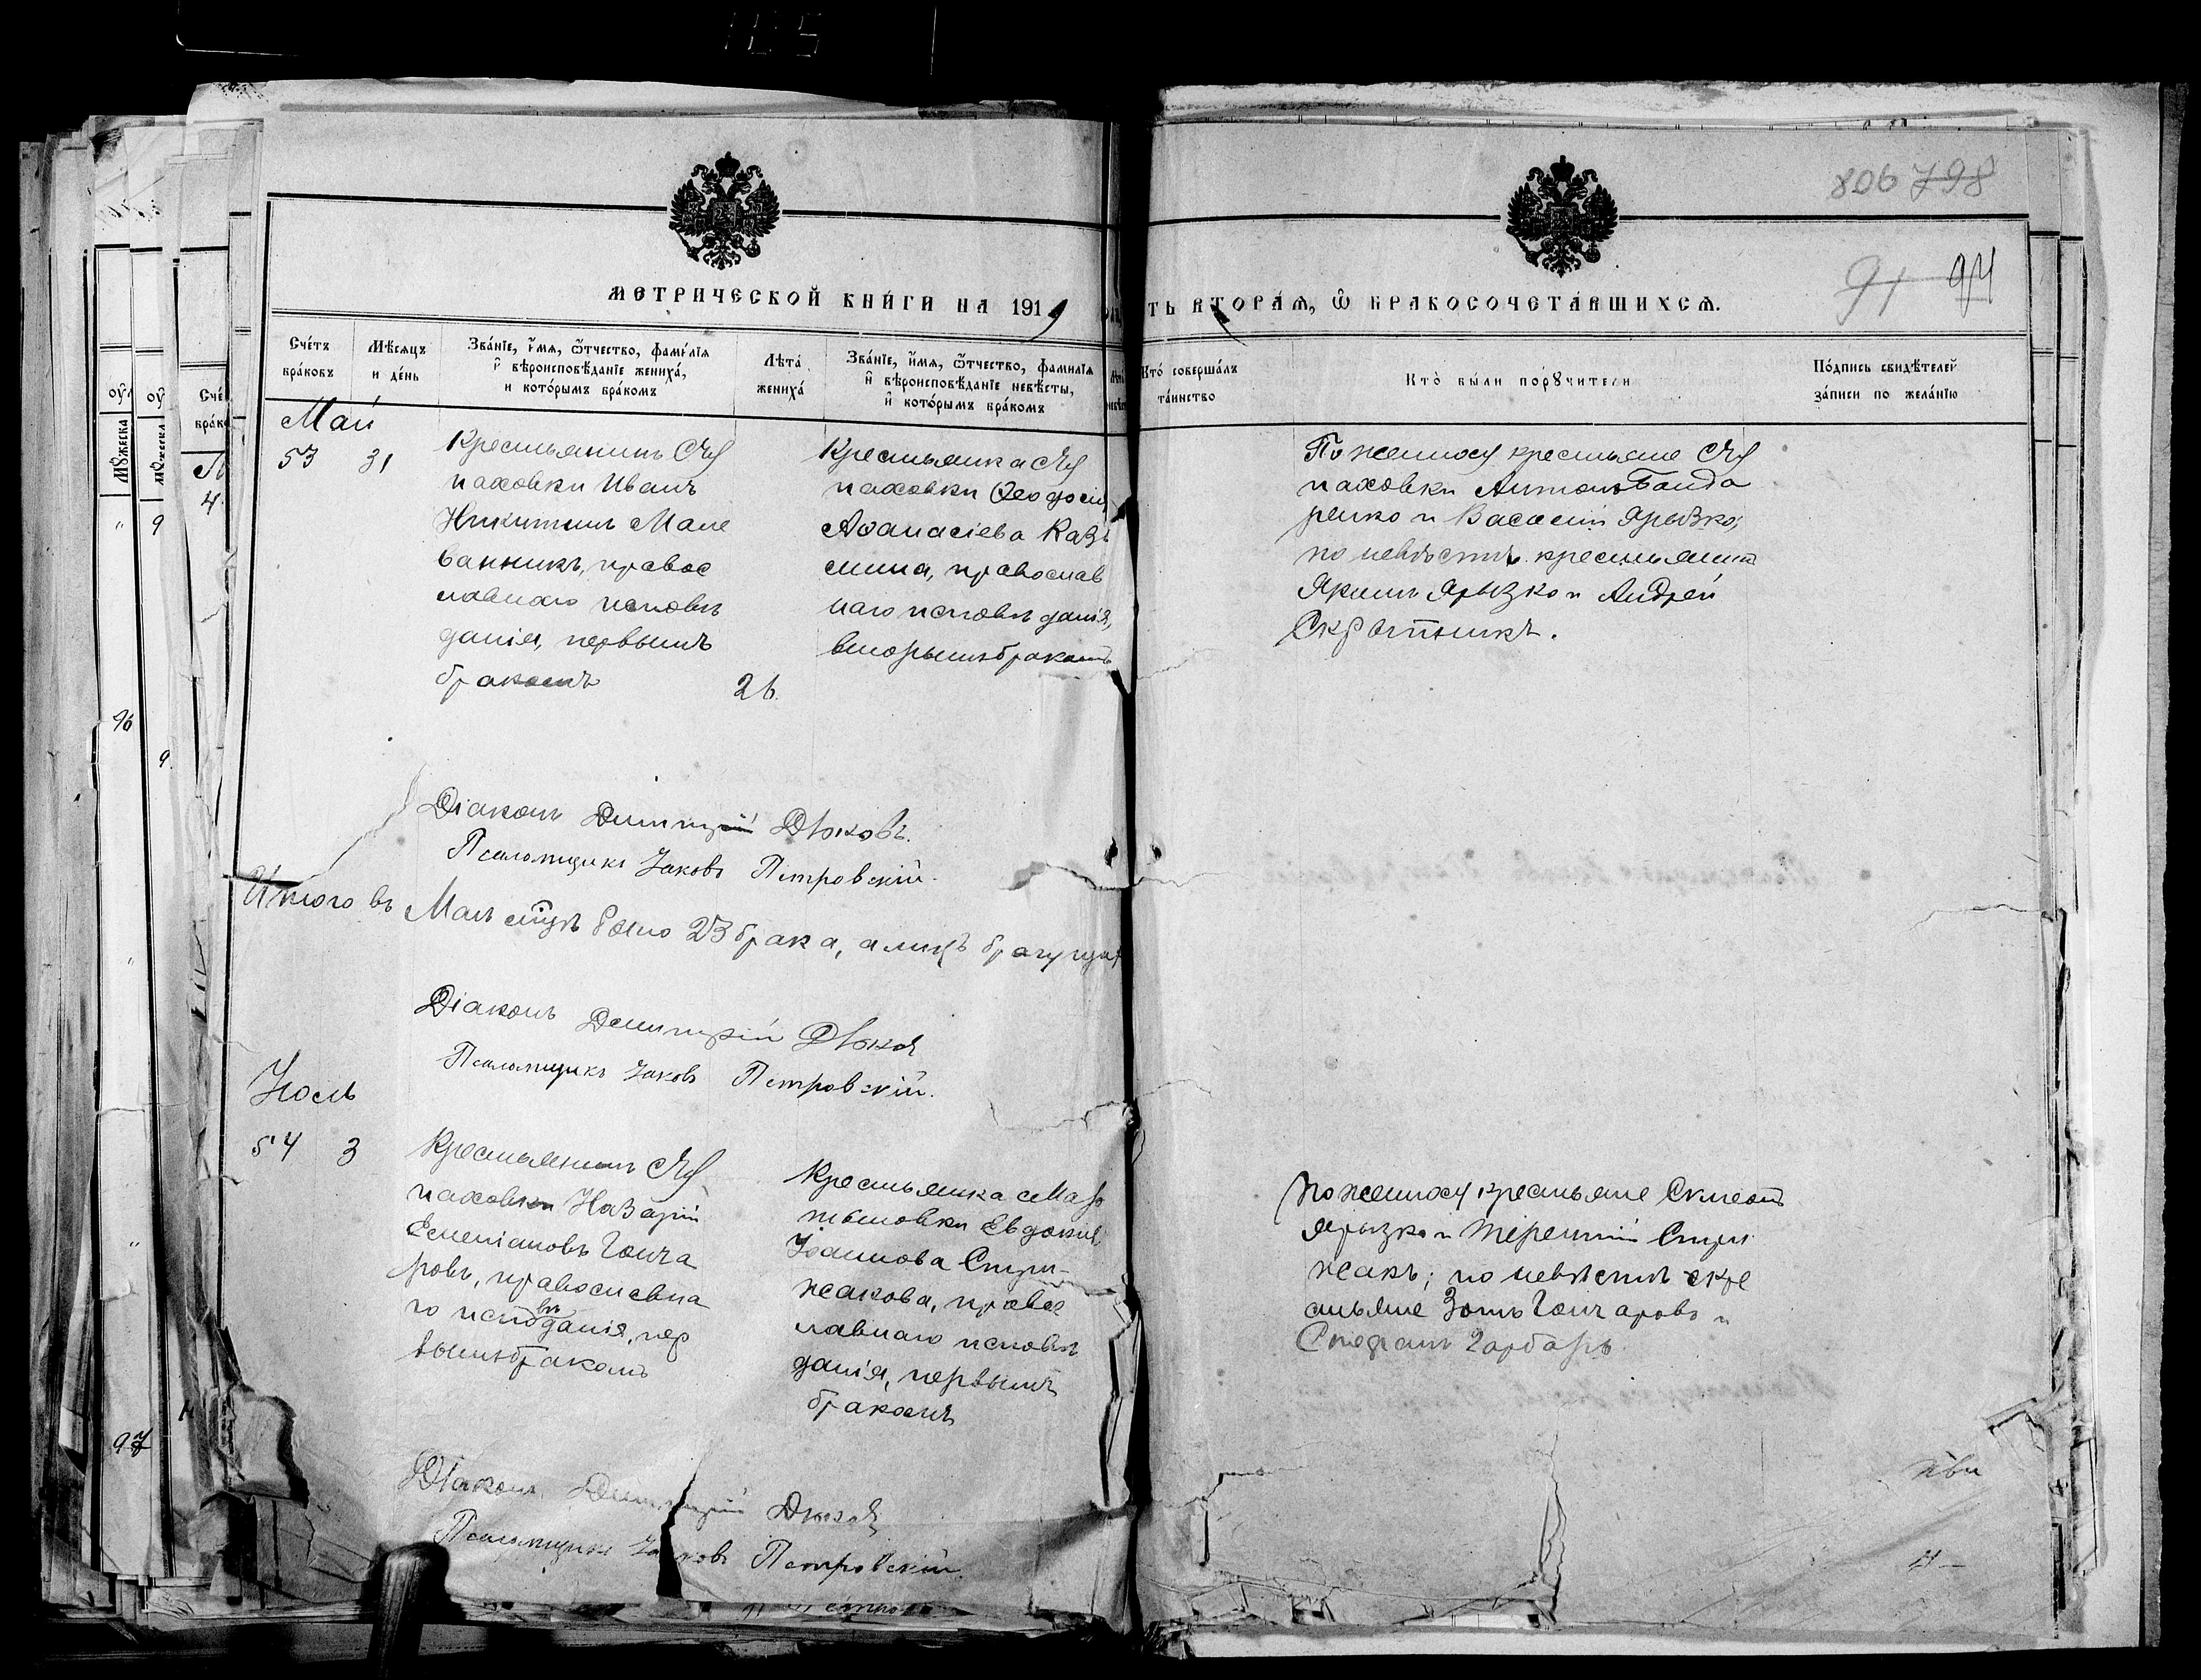 806 798
91 94
МЕТРИЧЕСКОЙ КНИ́ГИ НА 1919
ТЬ ВТОРА́Я, Ѡ БРАКОСОЧЕТА́ВШИХСЯ.
Сче́тъ бра́ковъ
Мѣ́сяцъ и де́нь
Зва́нїе, и҆́мя, ѻ҆́тчество, фами́лїя и҆ вѣроисповѣ́данїе жениха́, и кото́рымъ бра́комъ
Лѣта̀ жениха́
Зва́нїе, и҆́мя, ѻ҆́тчество, фами́лїя и҆ вѣроисповѣ́данїе невѣ́сты, и҆ кото́рымъ бра́комъ
Кто̀ соверша́лъ та́инство
Кто̀ бы́ли порꙋчи́тели
По́дпись свидѣ́телей за́писи по жела́нїю
Май
53 31
Крестьянинъ
паховки Иванъ
Никитинъ Мале
ванникъ, правос
лавнаго исповѣ
данія, первымъ
бракомъ
26.
Крестьянка
паховки Ѳеодосія
Аѳанасіева
православ
наго исповѣданія,
вторымъ бракомъ
По женихѣ крестьяне
паховки Антонъ Бонда
ренко и Василій Ярызко;
по невѣстѣ крестьяне
Якимъ Ярызко и Андрей
Скрыпникъ.
Діаконъ Димитрій Дюковъ.
Псаломщикъ Іаковъ Петровскій.
Итого въ Маѣ мѣсяцѣ было 23 брака, а лицъ
Діаконъ Димитрій Дюковъ
Псаломщикъ Іаковъ Петровскій.
54 3
Крестьянинъ
паховки Назарій
Емеліановъ Гонча
ровъ, православна
го исповѣданія, пер
вымъ бракомъ
Крестьянка Мар
тыновки Евдокія
Іоаннова Стри-
жакова, правос
лавнаго исповѣ
данія, первымъ
бракомъ
По женихѣ крестьяне
Ярызко и Терентій Стри
жакъ; по невѣстѣ кре
стьяне Зотъ Гончаровъ и
Стефанъ Гарбарь
Діаконъ Димитрій Дюковъ
Псаломщикъ Іаковъ Петровскій.